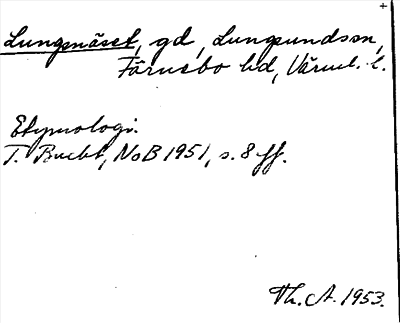 Lungsnäset, gd, Lungsundssn,
Färnebo hd, Värml. l.
Etymologi.
T. Bucht, NoB 1951, s. 8 ff.
Th. A. 1953.